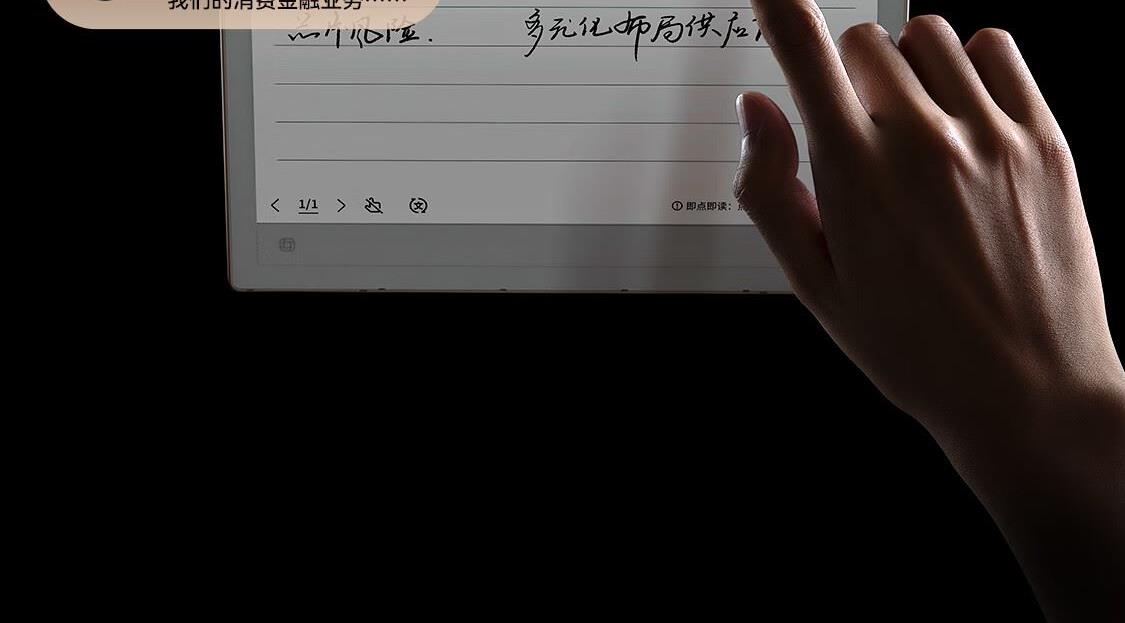 我们的消费金融业务……
芯片风险. 多元化布局供应
1/1
即点即读：